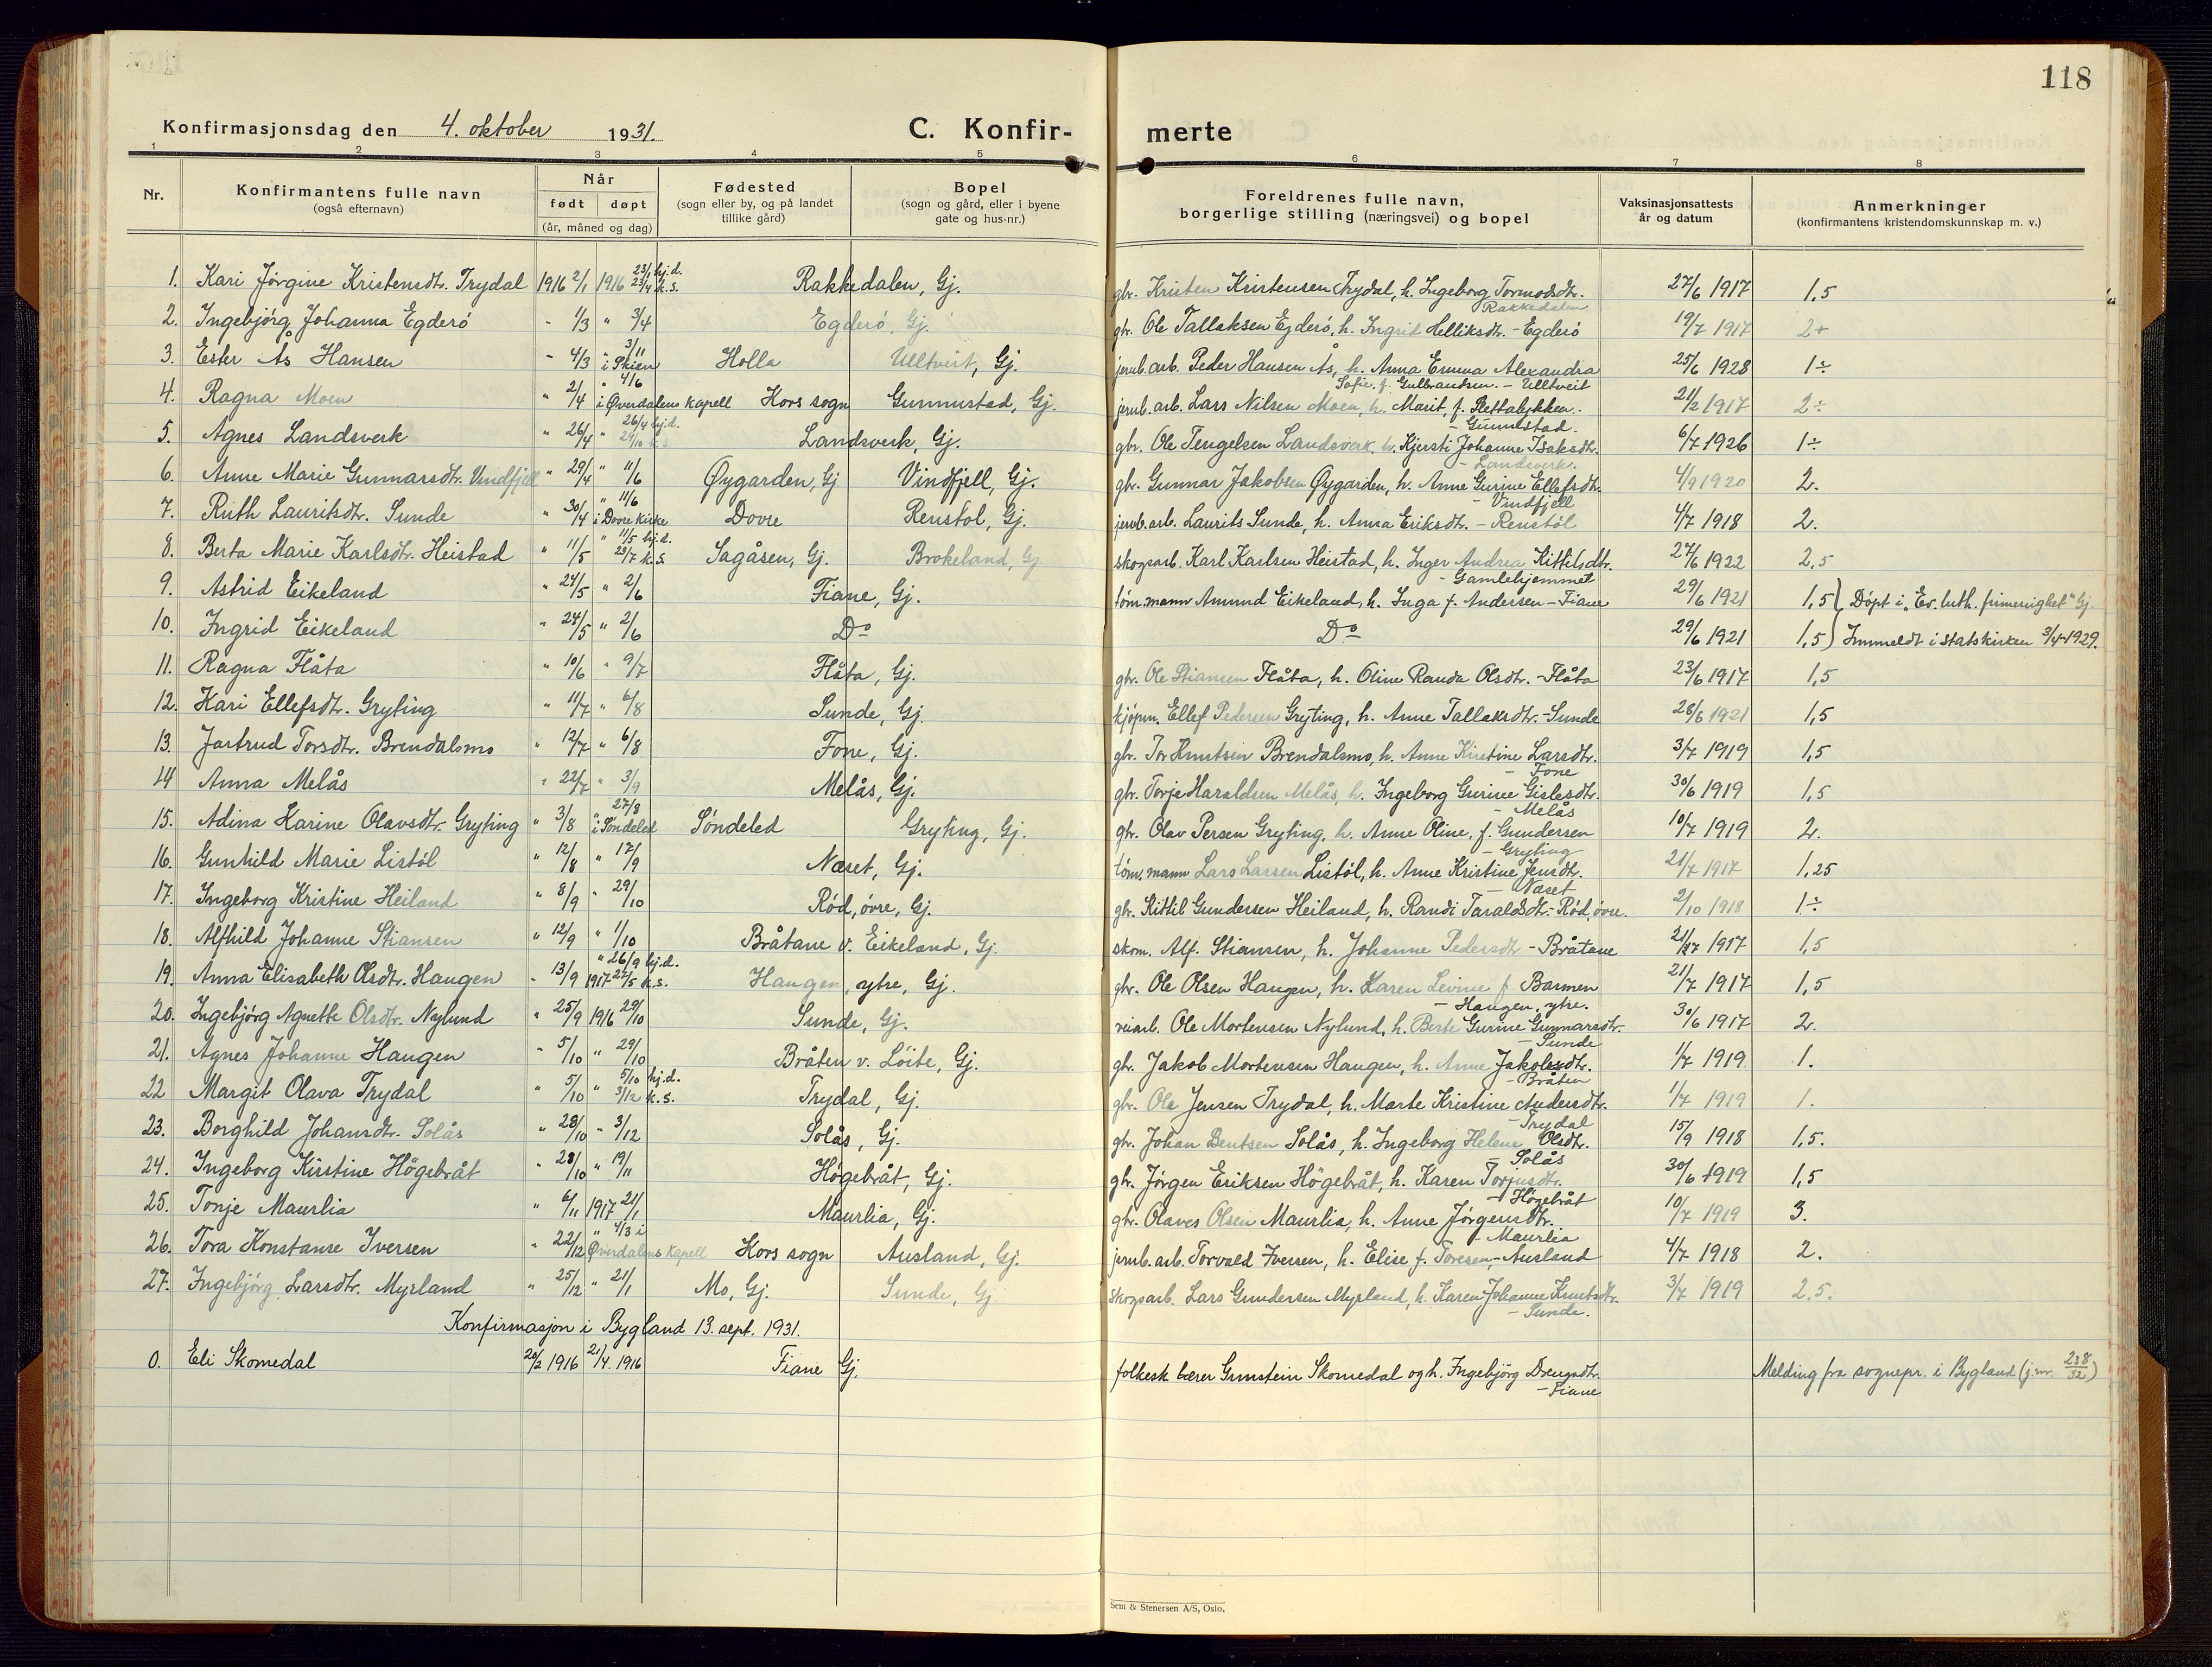 118
Konfirmasjonsdag den 4. oktober 1931.
C. Konfir-
merte
1 2 3 4 5 6 7 8
Nr.
Konfirmantens fulle navn
(også efternavn)
Når
født døpt
(år, måned og dag)
Fødested
(sogn eller by, og på landet
tillike gård)
Bopel
(sogn og gård, eller i byene
gate og hus-nr.)
Foreldrenes fulle navn,
borgerlige stilling (næringsvei) og bopel
Vaksinasjonsattests
år og datum
Anmerkninger
(konfirmantens kristendomskunnskap m. v.)
1. Kari Jørgine Kristensdtr. Trydal 1916 2/1 1916 23/1 hj.d. 23/4 k.s. Rakkedalen, Gj. gbr. Kristen Kristensen Trydal, h. Ingeborg Tormodsdtr. Rakkedalen 27/6 1917 1,5
2. Ingebjørg Johanna Egderö - 1/3 " 3/4 Egderö, Gj. gbr. Ole Tallaksen Egderö, h. Ingrid Helliksdtr. - Egderö 19/7 1917 2+
3. Ester Ås Hansen - 4/3 " 3/11 i Skien Holla Ulltveit, Gj. jernb.arb. Peder Hansen Ås, h. Anna Emma Alexandra Sofie, f. Gulbrandsen. - Ulltveit 25/6 1928 1÷
4. Ragna Moen " 2/4 " 4/6 i Øverdalens kapell Kors sogn Gunnustad, Gj. jernb.arb. Lars Nilsen Moen, h. Marit, f. Slettaløkken. - Gunnustad. 21/2 1917 2÷
5. Agnes Landsverk " 26/4 " 26/4 hj.d. 29/10 k.s. Landsverk, Gj. gbr. Ole Tengelsen Landsverk, h. Kjersti Johanne Isaksdtr. - Landsverk. 6/7 1926 1÷
6. Anne Marie Gunnarsdtr. Vindfjell " 29/4 " 11/6 Øygarden, Gj Vindfjell, Gj. gbr. Gunnar Jakobsen Øygarden, h. Anne Gurine Ellefsdtr. - Vindfjell 4/9 1920 2.
7. Ruth Lauritsdtr. Sunde " 30/4 " 11/6 i Dovre kirke Dovre Renstöl, Gj. jernb.arb. Laurits Sunde, h. Anna Eriksdtr. - Renstöl 4/7 1918 2.
8. Berta Marie Karlsdtr. Heistad " 11/5 " 11/5 hj.d. 23/7 k.s. Sagåsen, Gj. Brokeland, Gj skogsarb. Karl Karlsen Heistad, h. Inger Andrea Kittilsdtr. - Gamlehjemmet 27/6 1922 2,5
9. Astrid Eikeland " 24/5 " 2/6 Fiane, Gj. töm.mann Amund Eikeland, h. Inga f. Andersen - Fiane 29/6 1921 1,5 } Döpt i "Ev. luth. frimenighet" Gj.
10. Ingrid Eikeland " 24/5 " 2/6 Do Do 29/6 1921 1,5 } Innmeldt i statskirken 3/4-1929.
11. Ragna Flåta " 10/6 " 9/7 Flåta, Gj. gbr. Ole Stiansen Flåta, h. Oline Randa Olsdtr. - Flåta 23/6 1917 1,5
12. Kari Ellefsdtr. Gryting " 11/7 " 6/8 Sunde, Gj. kjöpm. Ellef Pedersen Gryting, h. Anne Tallaksdtr. - Sunde 28/6 1921 1,5
13. Jartrud Torsdtr. Brendalsmo " 12/7 " 6/8 Fone, Gj. gbr. Tor Knutsen Brendalsmo, h. Anne Kirstine Larsdtr. - Fone 3/7 1919 1,5
14 Anna Melås " 22/7 " 3/9 Melås, Gj. gbr. Torje Haraldsen Melås, h. Ingeborg Gurine Gislesdtr. - Melås 30/6 1919 1,5
15. Adina Karine Olavsdtr. Gryting " 3/8 " 27/8 i Söndeled Söndeled Gryting, Gj. gbr. Olav Persen Gryting, h. Anne Oline, f. Gundersen - Gryting 10/7 1919 2.
16. Gunhild Marie Listöl " 12/8 " 17/9 Næset, Gj. töm.mann Lars Larsen Listöl, h. Anne Kristine Jensdtr. - Næset 21/7 1917 1,25
17. Ingeborg Kristine Heiland " 8/9 " 29/10 Röd, övre, Gj. gbr. Kittil Gundersen Heiland, h. Randi Taraldsdtr. - Röd, övre. 2/10 1918 1÷
18. Alfhild Johanne Stiansen " 12/9 " 1/10 Bråtane v. Eikeland, Gj. skom. Alf. Stiansen, h. Johanne Pedersdtr - Bråtane 21/7 1917 1,5
19. Anna Elisabeth Olsdtr. Haugen - 13/9 " 26/9 hj.d. 1917 27/5 k.s. Haugen, ytre, Gj. gbr. Ole Olsen Haugen, h. Karen Levine f. Barmen - Haugen, ytre. 21/7 1917 1,5
20. Ingebjörg Agnette Olsdtr. Nylund " 25/9 1916 29/10 Sunde, Gj. veiarb. Ole Mortensen Nylund, h. Berte Gurine Gunnarsdtr. - Sunde 30/6 1917 2.
21. Agnes Johanne Haugen " 5/10 " 29/10 Bråten v. Löite, Gj. gbr. Jakob Mortensen Haugen, h. Anne Jakobsdtr. - Bråten 1/7 1919 1.
22 Margit Olava Trydal " 5/10 " 5/10 hj.d. 3/12 k.s. Trydal, Gj. gbr. Ole Jensen Trydal, h. Marte Kristine Andersdtr. - Trydal 1/7 1919 1.
23. Borghild Johansdtr. Solås " 28/10 - 3/12 Solås, Gj. gbr. Johan Bentsen Solås, h. Ingeborg Helene Olsdtr. - Solås 15/9 1918 1,5.
24. Ingeborg Kirstine Högebråt " 28/10 " 19/11 Högebråt, Gj. gbr. Jörgen Eriksen Högebråt, h. Karen Torjusdtr. - Högebråt 30/6 1919 1,5
25. Tonje Maurlia " 6/11 1917 21/1 Maurlia, Gj. gbr. Olaves Olsen Maurlia, h. Anne Jörgensdtr. - Maurlia 10/7 1919 3.
26. Tora Konstanse Iversen " 22/12 " 4/3 i Øverdalens kapell Kors sogn Ausland, Gj. jernb.arb. Torvald Iversen, h. Elise f. Toresen, - Ausland 4/7 1918 2.
27. Ingebjörg Larsdtr. Myrland " 25/12 " 21/1 Mo, Gj. Sunde, Gj skogsarb. Lars Gundersen Myrland, h. Karen Johanne Knutsdtr. - Sunde. 3/7 1919 2,5.
Konfirmasjon i Bygland 13. sept. 1931.
0. Eli Skomedal 20/2 1916 21/4. 1916 Fiane Gj. folkesk.lærer Gunstein Skomedal og h. Ingebjörg Drengsdtr. - Fiane Melding fra sognepr. i Bygland (j.nr. 238/32)
Sem & Stenersen A/S, Oslo.